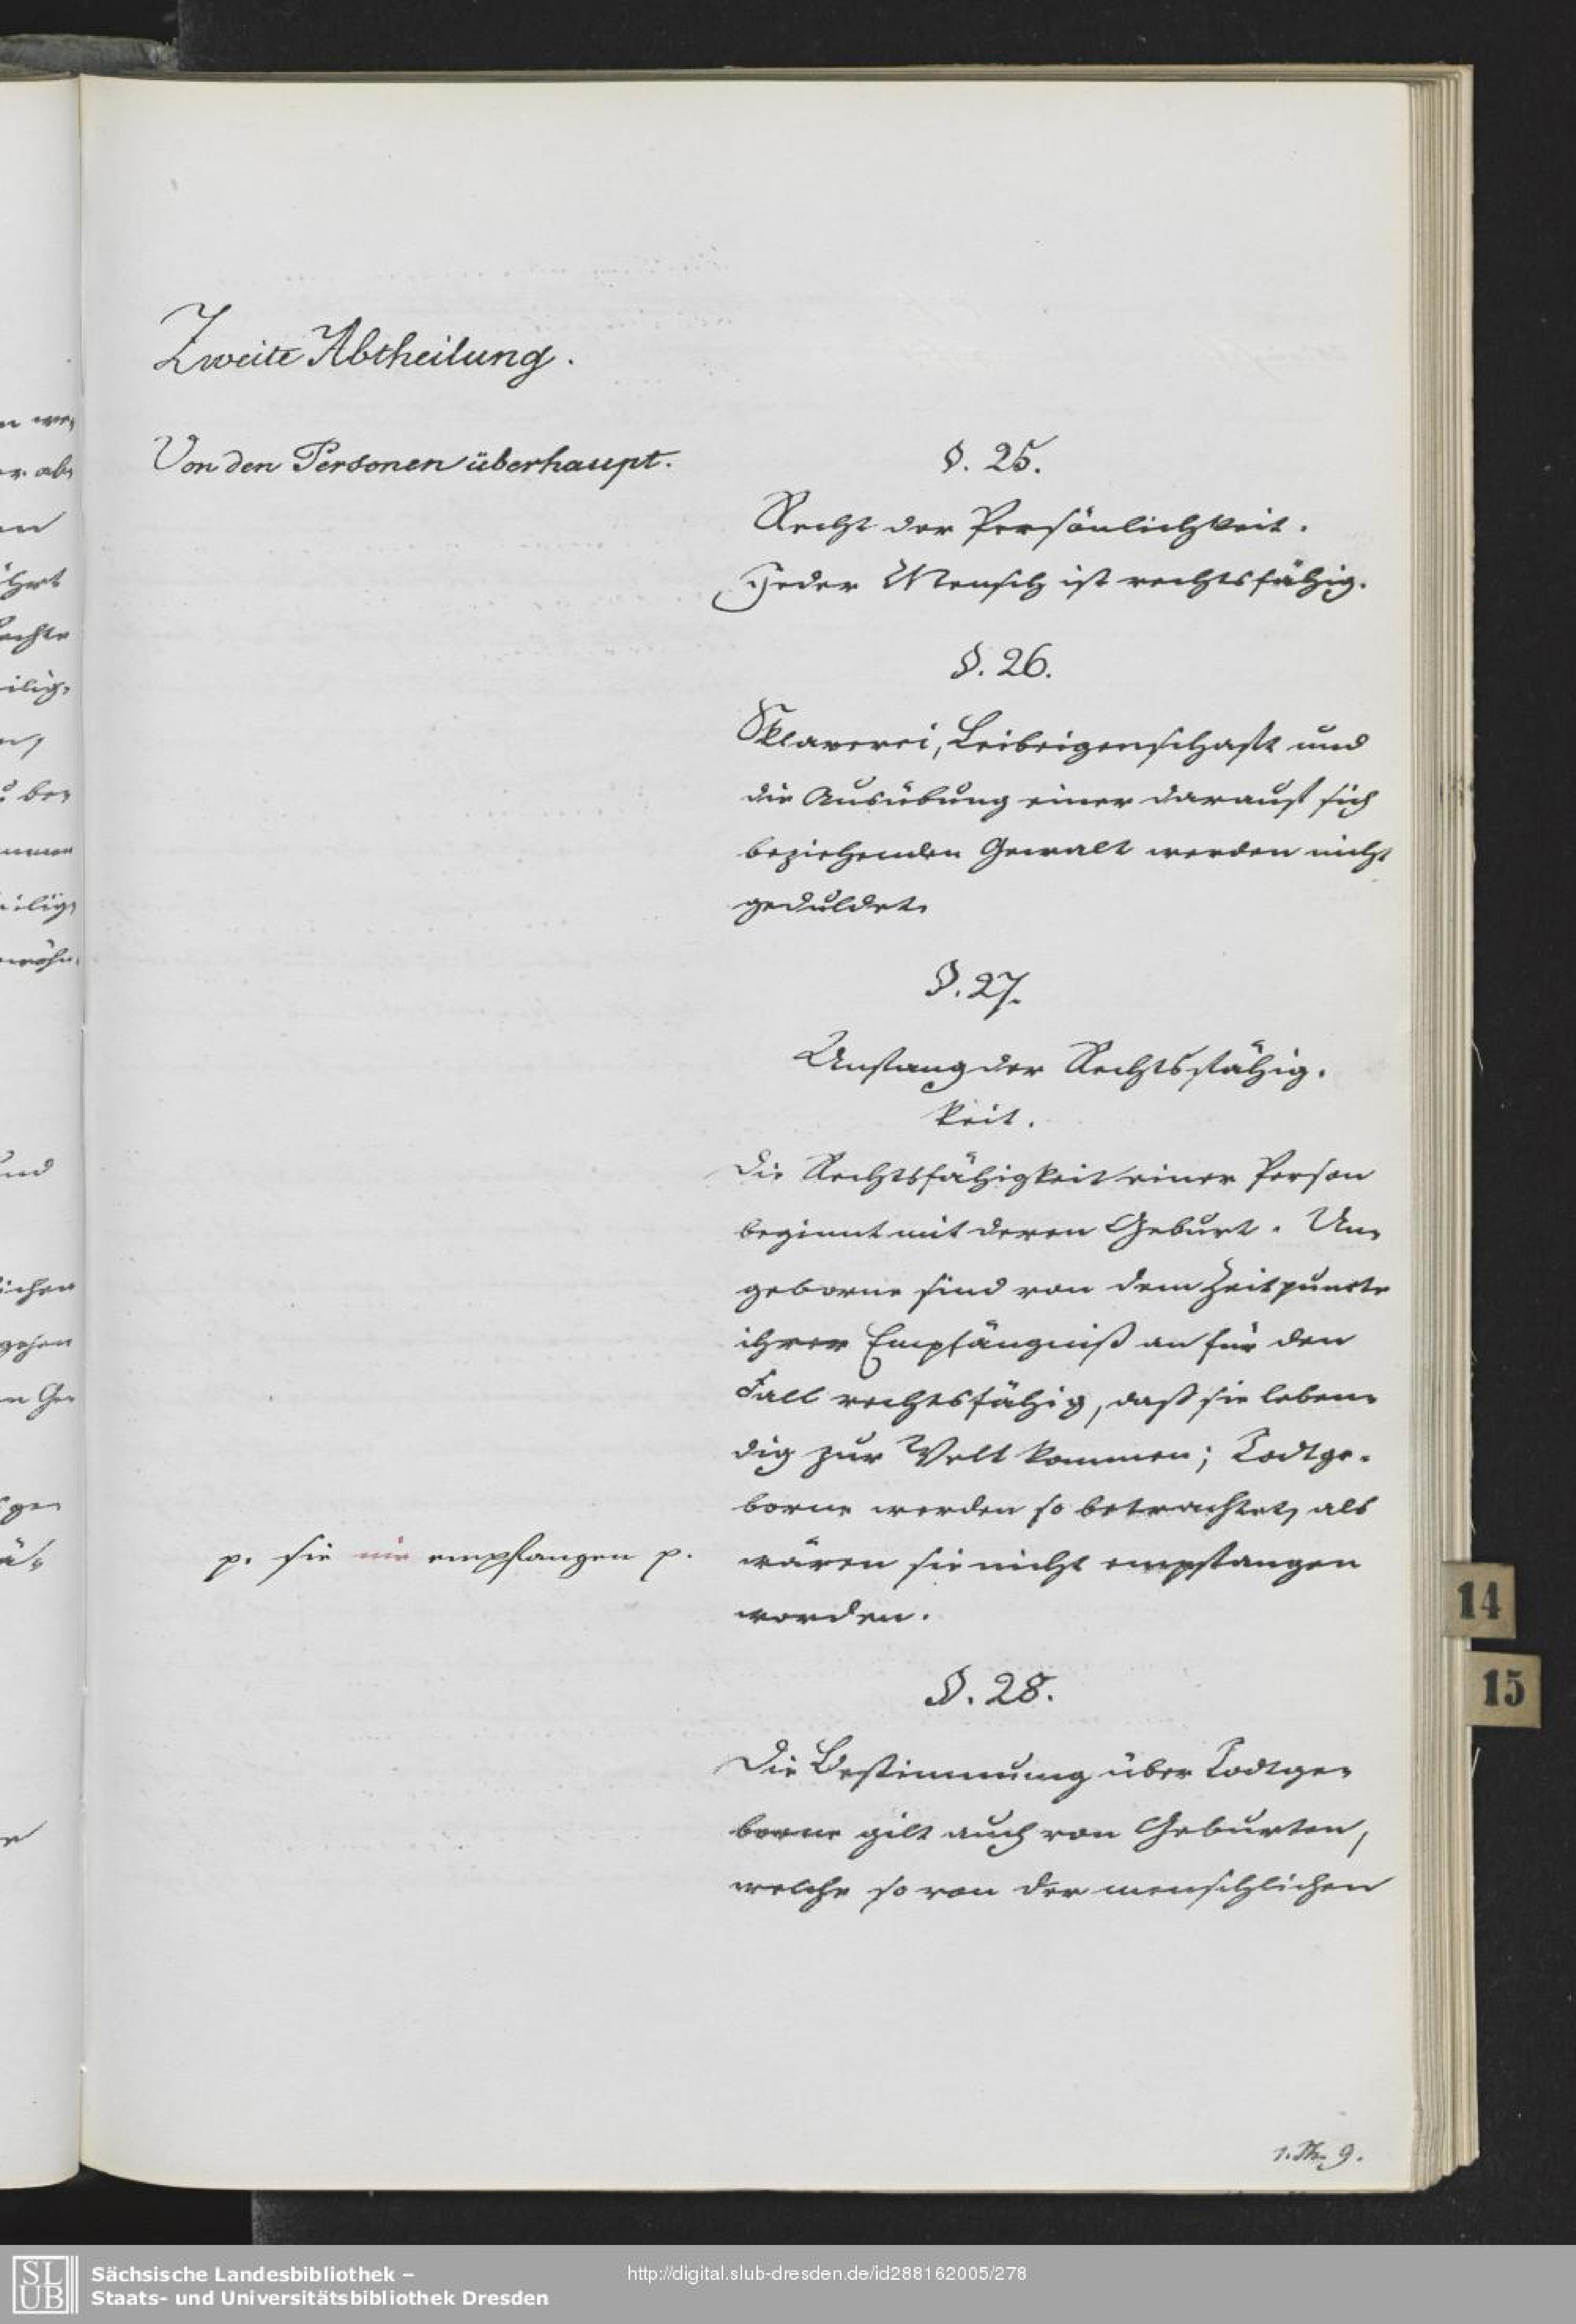 Zweite Abtheilung.
Von den Personen überhaupt.
§. 25.
Recht der Persönlichkeit.
Jeder Mensch ist rechtsfähig.
§. 26.
Sklaverei, Leibeigenschaft und
die Ausübung einer darauf sich
beziehenden Gewalt werden nicht
geduldet.
§. 27.
Anfang der Rechtsfähig-
keit.
Die Rechtsfähigkeit einer Person
beginnt mit deren Geburt. Un-
geborne sind von dem Zeitpuncte
ihrer Empfängniß an für den
Fall rechtsfähig, daß sie leben-
dig zur Welt kommen; Todtge-
borne werden so betrachtet, als
p. sie nie empfangen p.
wären sie nicht empfangen
worden.
§. 28.
Die Bestimmung über Todtge-
borne gilt auch von Geburten,
welche so von der menschlichen
1. Th. 9.
14
15
SLUB
Sächsische Landesbibliothek –
Staats- und Universitätsbibliothek Dresden
http://digital.slub-dresden.de/id288162005/278